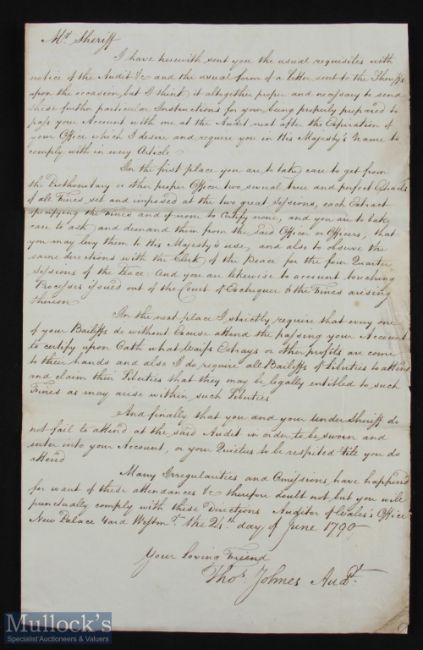 Mr. Sheriff
I have herewith sent you the usual requisites with
notice of the Audit &c and the usual form of a Letter sent to the Sheriffs
upon the occasion, but I think it altogether proper and necessary to send
these further particular Instructions for your being properly prepared to
pass your Account with me at the Audit next after the Expiration of
your Office which I desire and require you in his Majesty's Name to
comply with in every Article.
In the first place you are to take care to get from
the Prothonotary or other proper Officer two several true and perfect Extracts
of all Fines set and imposed at the two great Sessions, each Extract
specifying the Fines and if none to Certify none, and you are to take
care to ask and demand them from the said Office or Officers, that
you may levy them to his Majesty's use, and also to observe the
same directions with the Clerk of the Peace for the four Quarter
Sessions of the Peace. And you are likewise to account touching
Processes issued out of the Court of Exchequer & the Fines arising
thereon
In the next place I strictly require that every one
of your Bailiffs do without Excuse attend the passing your Account
to certify upon Oath what Waifs Estrays or other profits are come
to their hands and also I do require all Bailiffs of Liberties to attend
and claim their Liberties that they may be legally entitled to such
Fines as may arise within such Liberties
And finally that you and your Under Sheriff do
not fail to attend at the said Audit in order to be sworn and
enter into your Account, or your Quietus to be respited till you do
attend
Many Irregularities and Omissions have happened
for want of these attendances &c therefore doubt not, but you will
punctually comply with these Directions Auditor of Wales's Office
New Palace Yard Westmr. the 24th day of June 1790
Your loving Friend
Thos. Johnes Audr.
Mullock's
Specialist Auctioneers & Valuers